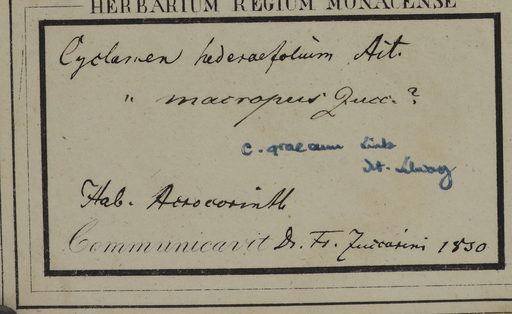 HERBARIUM REGIUM MONACENSE
Cyclamen hederaefolium Ait.
" macropus Zucc.?
C. graecum Link
Hab. Acrocorinth
Communicavit Dr. Fr. Zuccarini 1830